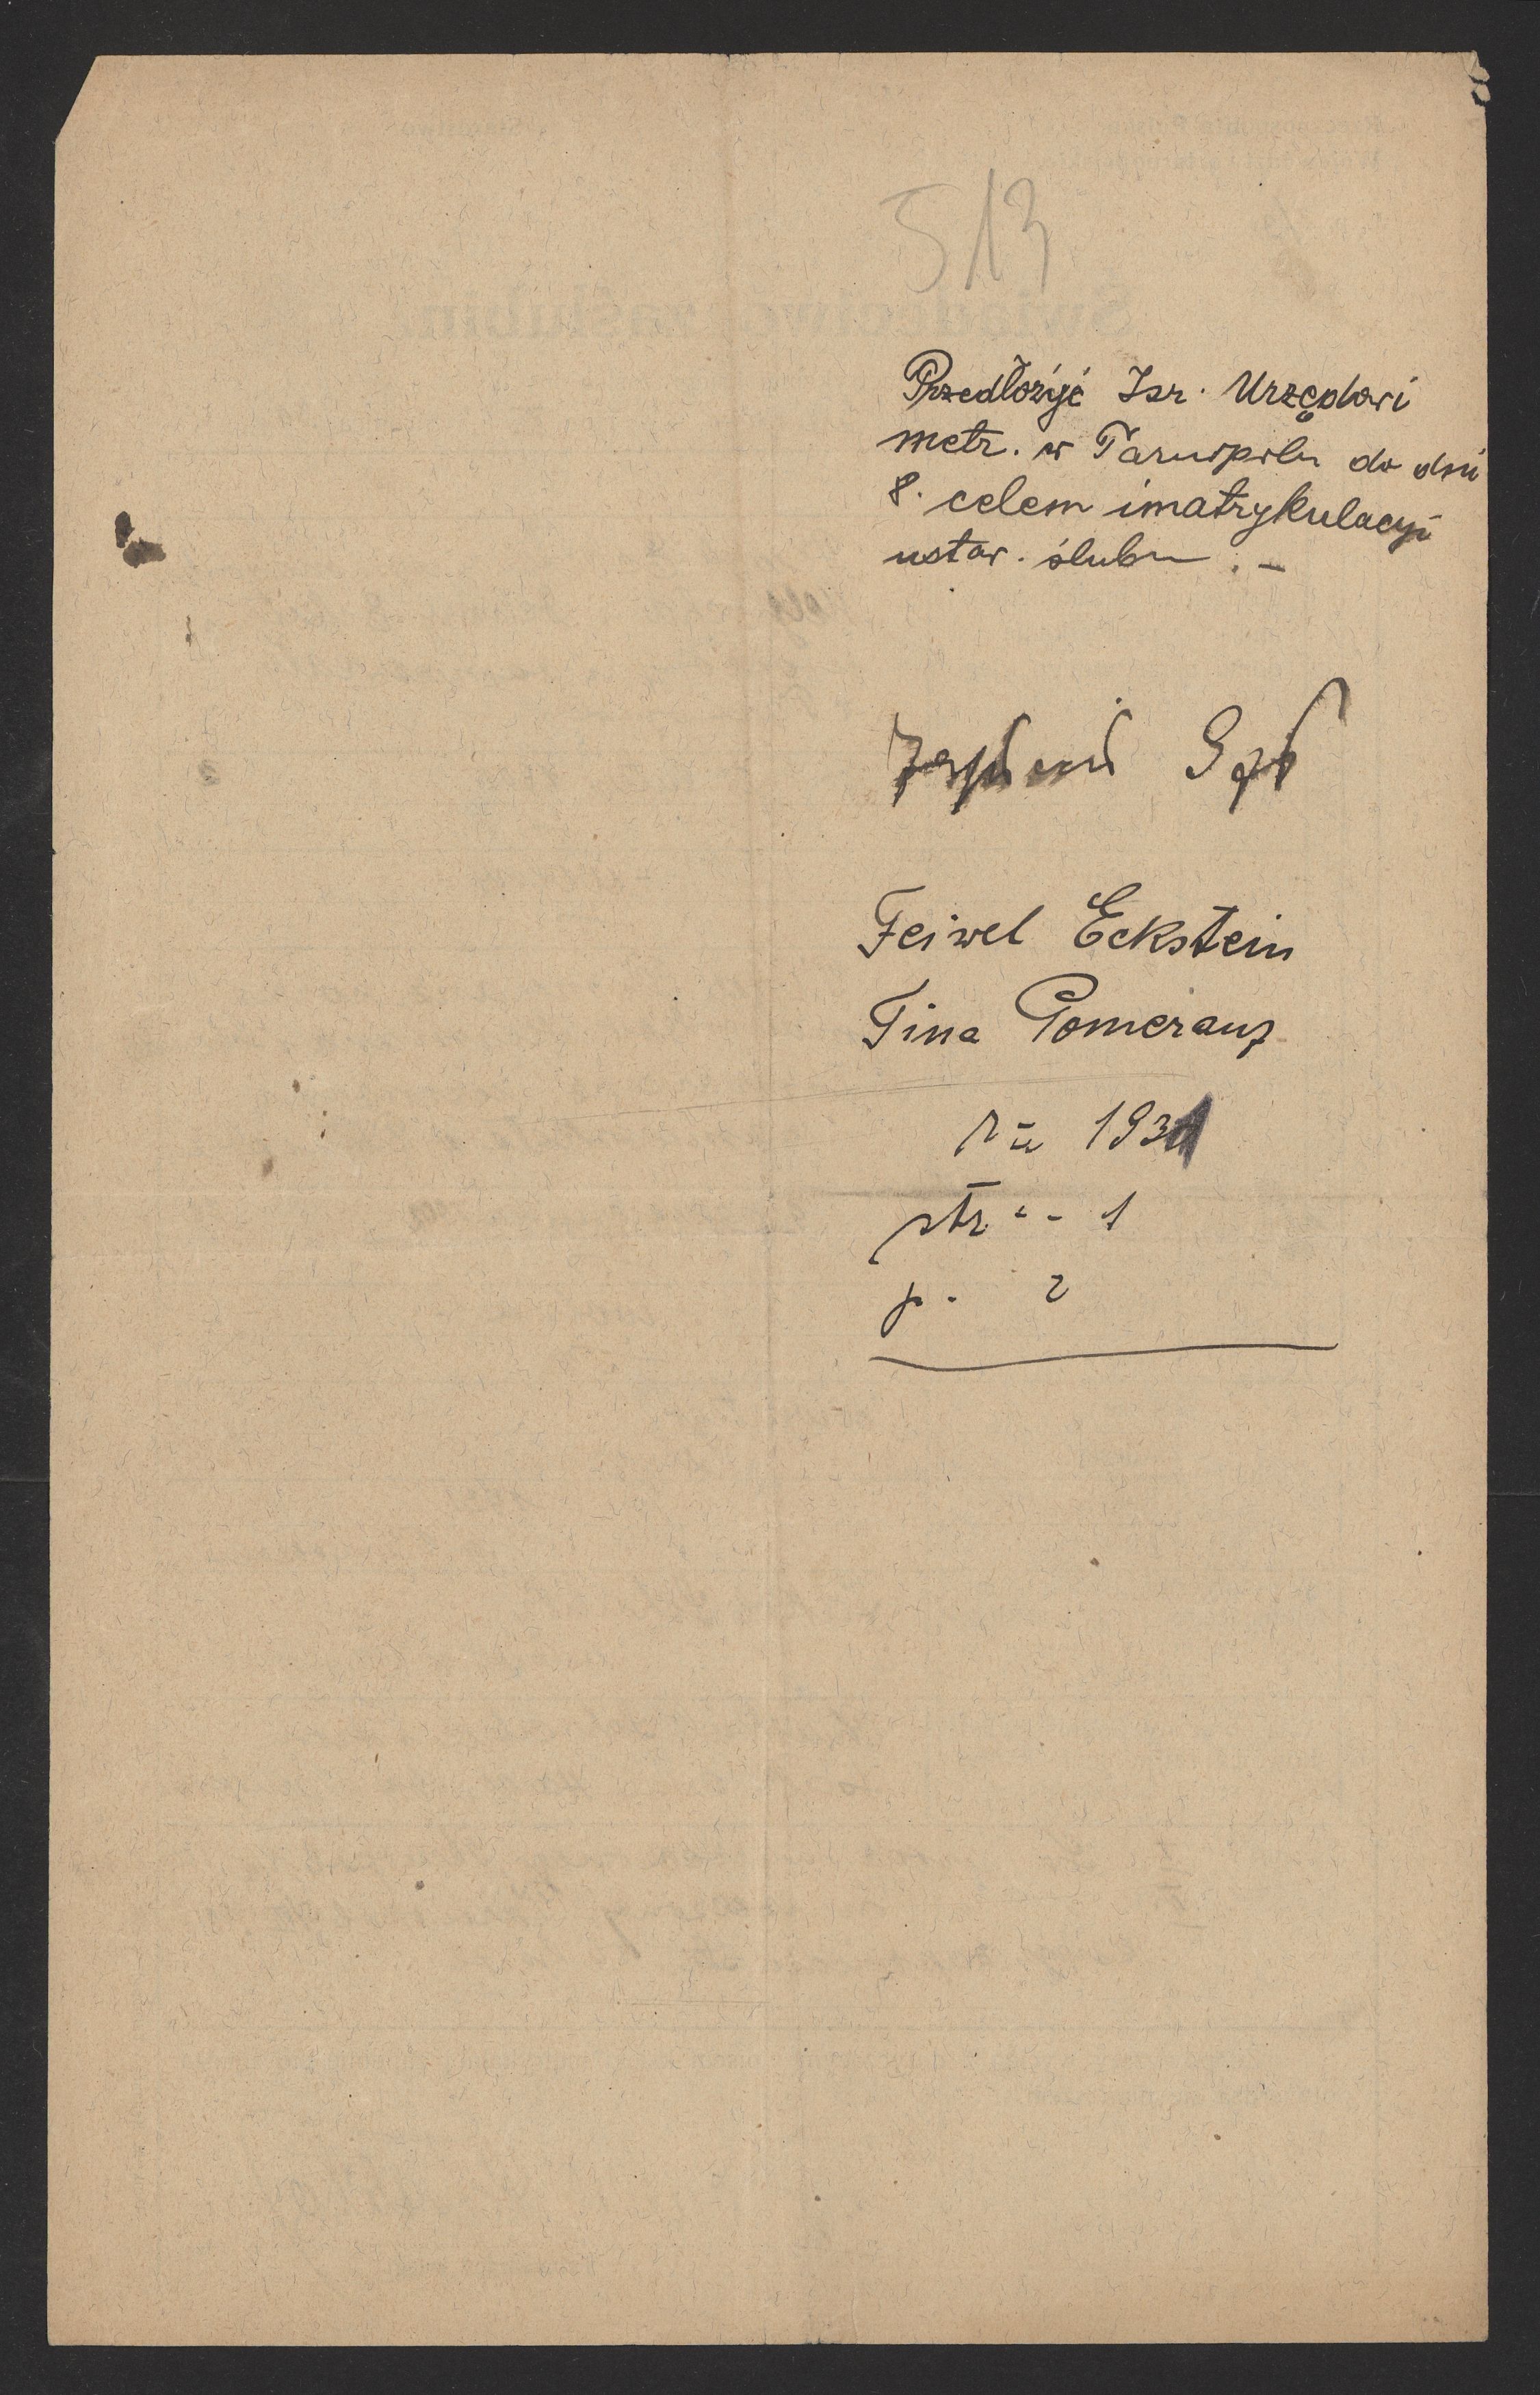 513
Przedłożyć Izr. Urzędowi
metr. w Tarnopolu do dni
8. celem imatrykulacyi
ustaw. ślubu . –
Feiwel Eckstein
Tina Pomeranz
1931
str. - - 1
p. 2